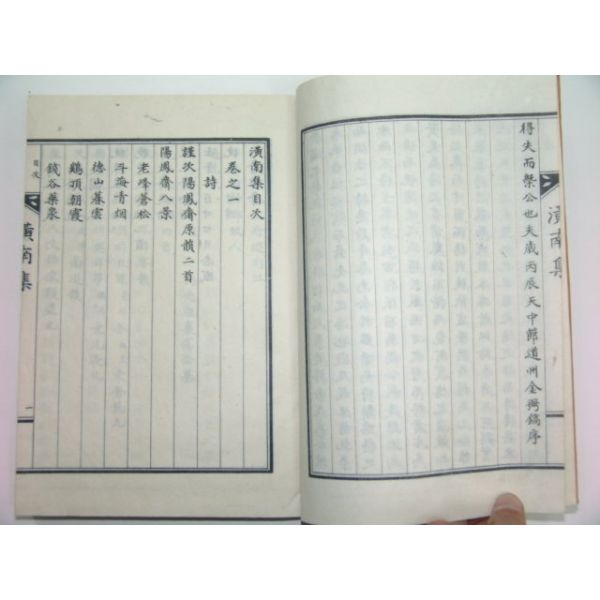 得失而槩公也夫歲丙辰天中節道州金㙜鎬序
潢南集
潢南集目次
卷之一
詩
謹次陽鳳齋原韻二首
陽鳳齋八景
老峰蒼松
斗海青烟
德山暮雲
鷄頂朝霞
錢谷藥泉
目次
潢南集
一